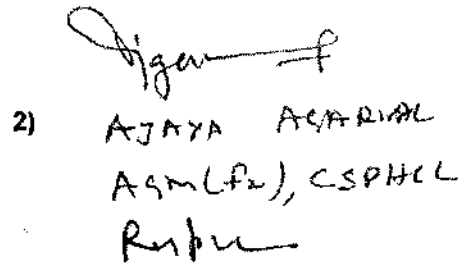 2) AJAYA AGARWAL
AGM(Fn), CSPHCL
Raipur